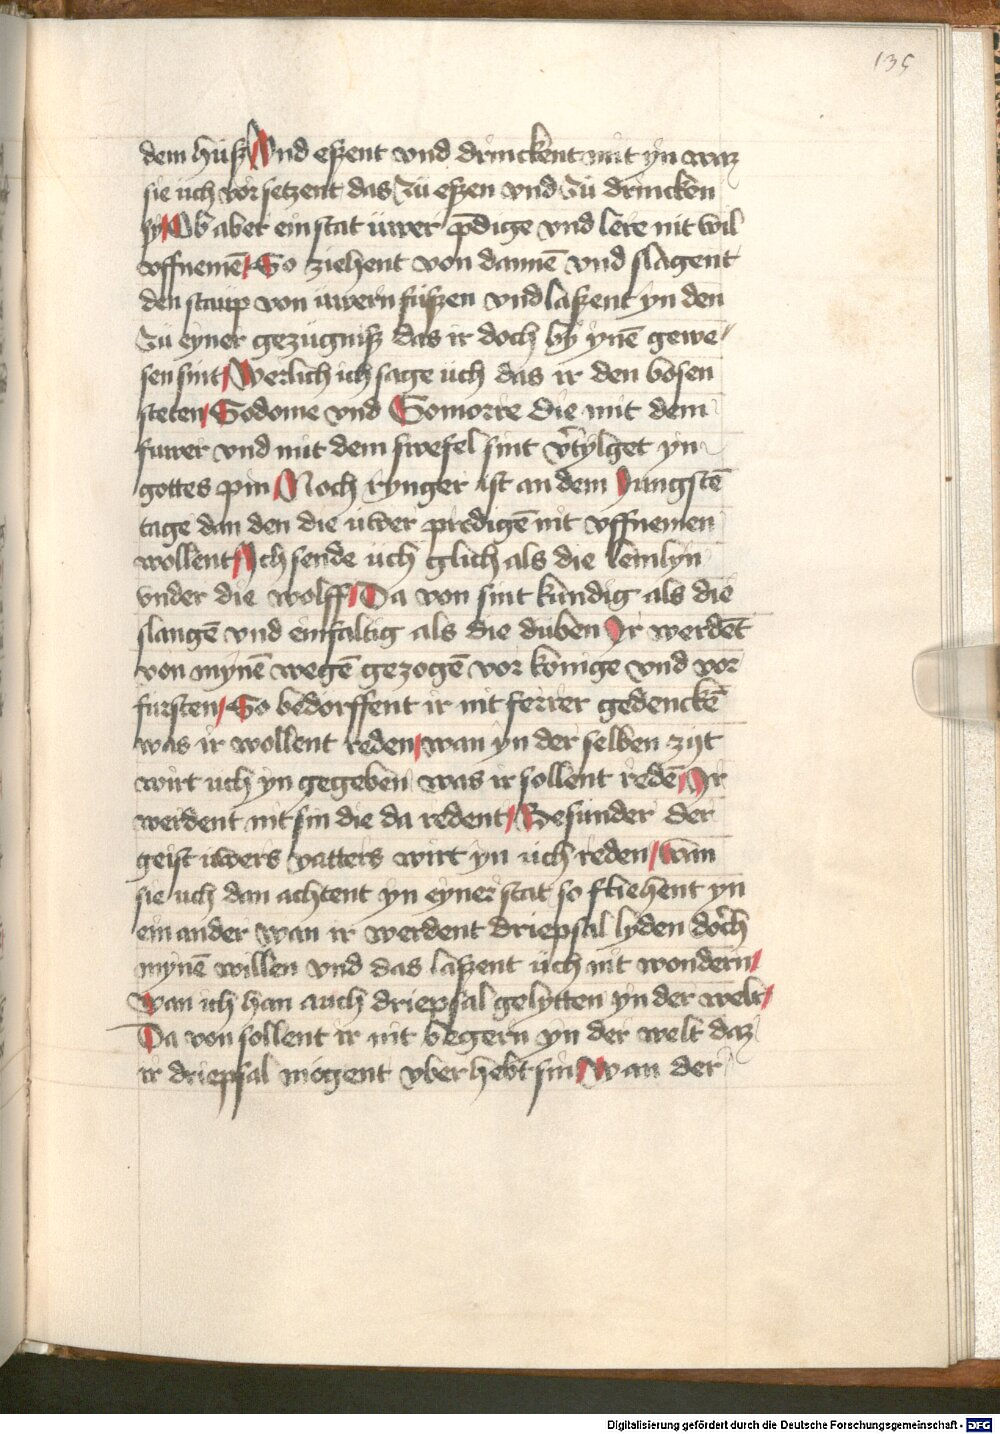 135
dem hüß Vnd eßent vnd drinckent mit yn waz
sie üch vor setzent das zü eßen vnd zü drincken
sy / Ob aber ein stat üwer p̄dige vnd lere nit wil
vffnemē / So ziehent von dannē vnd slagent
den staup von üwern füßen vnd laßent yn den
zü eyner gezügniß das ir doch by ynē gewe/
sen sint / Werlich ich sage üch das ir den bosen
steten / Sodome vnd Gomorre die mit dem
fuwer vnd mit dem swefel sint v̄tylget yn
gottes pin / Noch rynger ist an dem Jungstē
tage dan den die üwer predigē nit vffnemen
wollent / Ich sende üch glich als die lemlyn
vnder die wolff / Da von sint kündig als die
slangē vnd einfaltig als die duben Ir werdēt
von mynē wegē gezogē vor konige vnd vor
fursten / So bedorffent ir nit ferrer gedenckē
was ir wollent reden / wan yn der selben zijt
wirt uch yn gegeben was ir sollent redē / Ir
werdent nit sin die da redent / Besunder der
geist uwers vatters wirt yn üch reden / wan
sie uch dan achtent yn eyner stat so fliehent yn
ein ander wan ir werdent driepsal lyden dorch
mynē willen vnd das laßent üch nit wondern /
wan ich han auch driepsal gelytten yn der welt /
Da von sollent ir nit begern yn der welt daz
ir driepsal mogent vber hebt sin / wan der
Digitalisierung gefördert durch die Deutsche Forschungsgemeinschaft - DFG